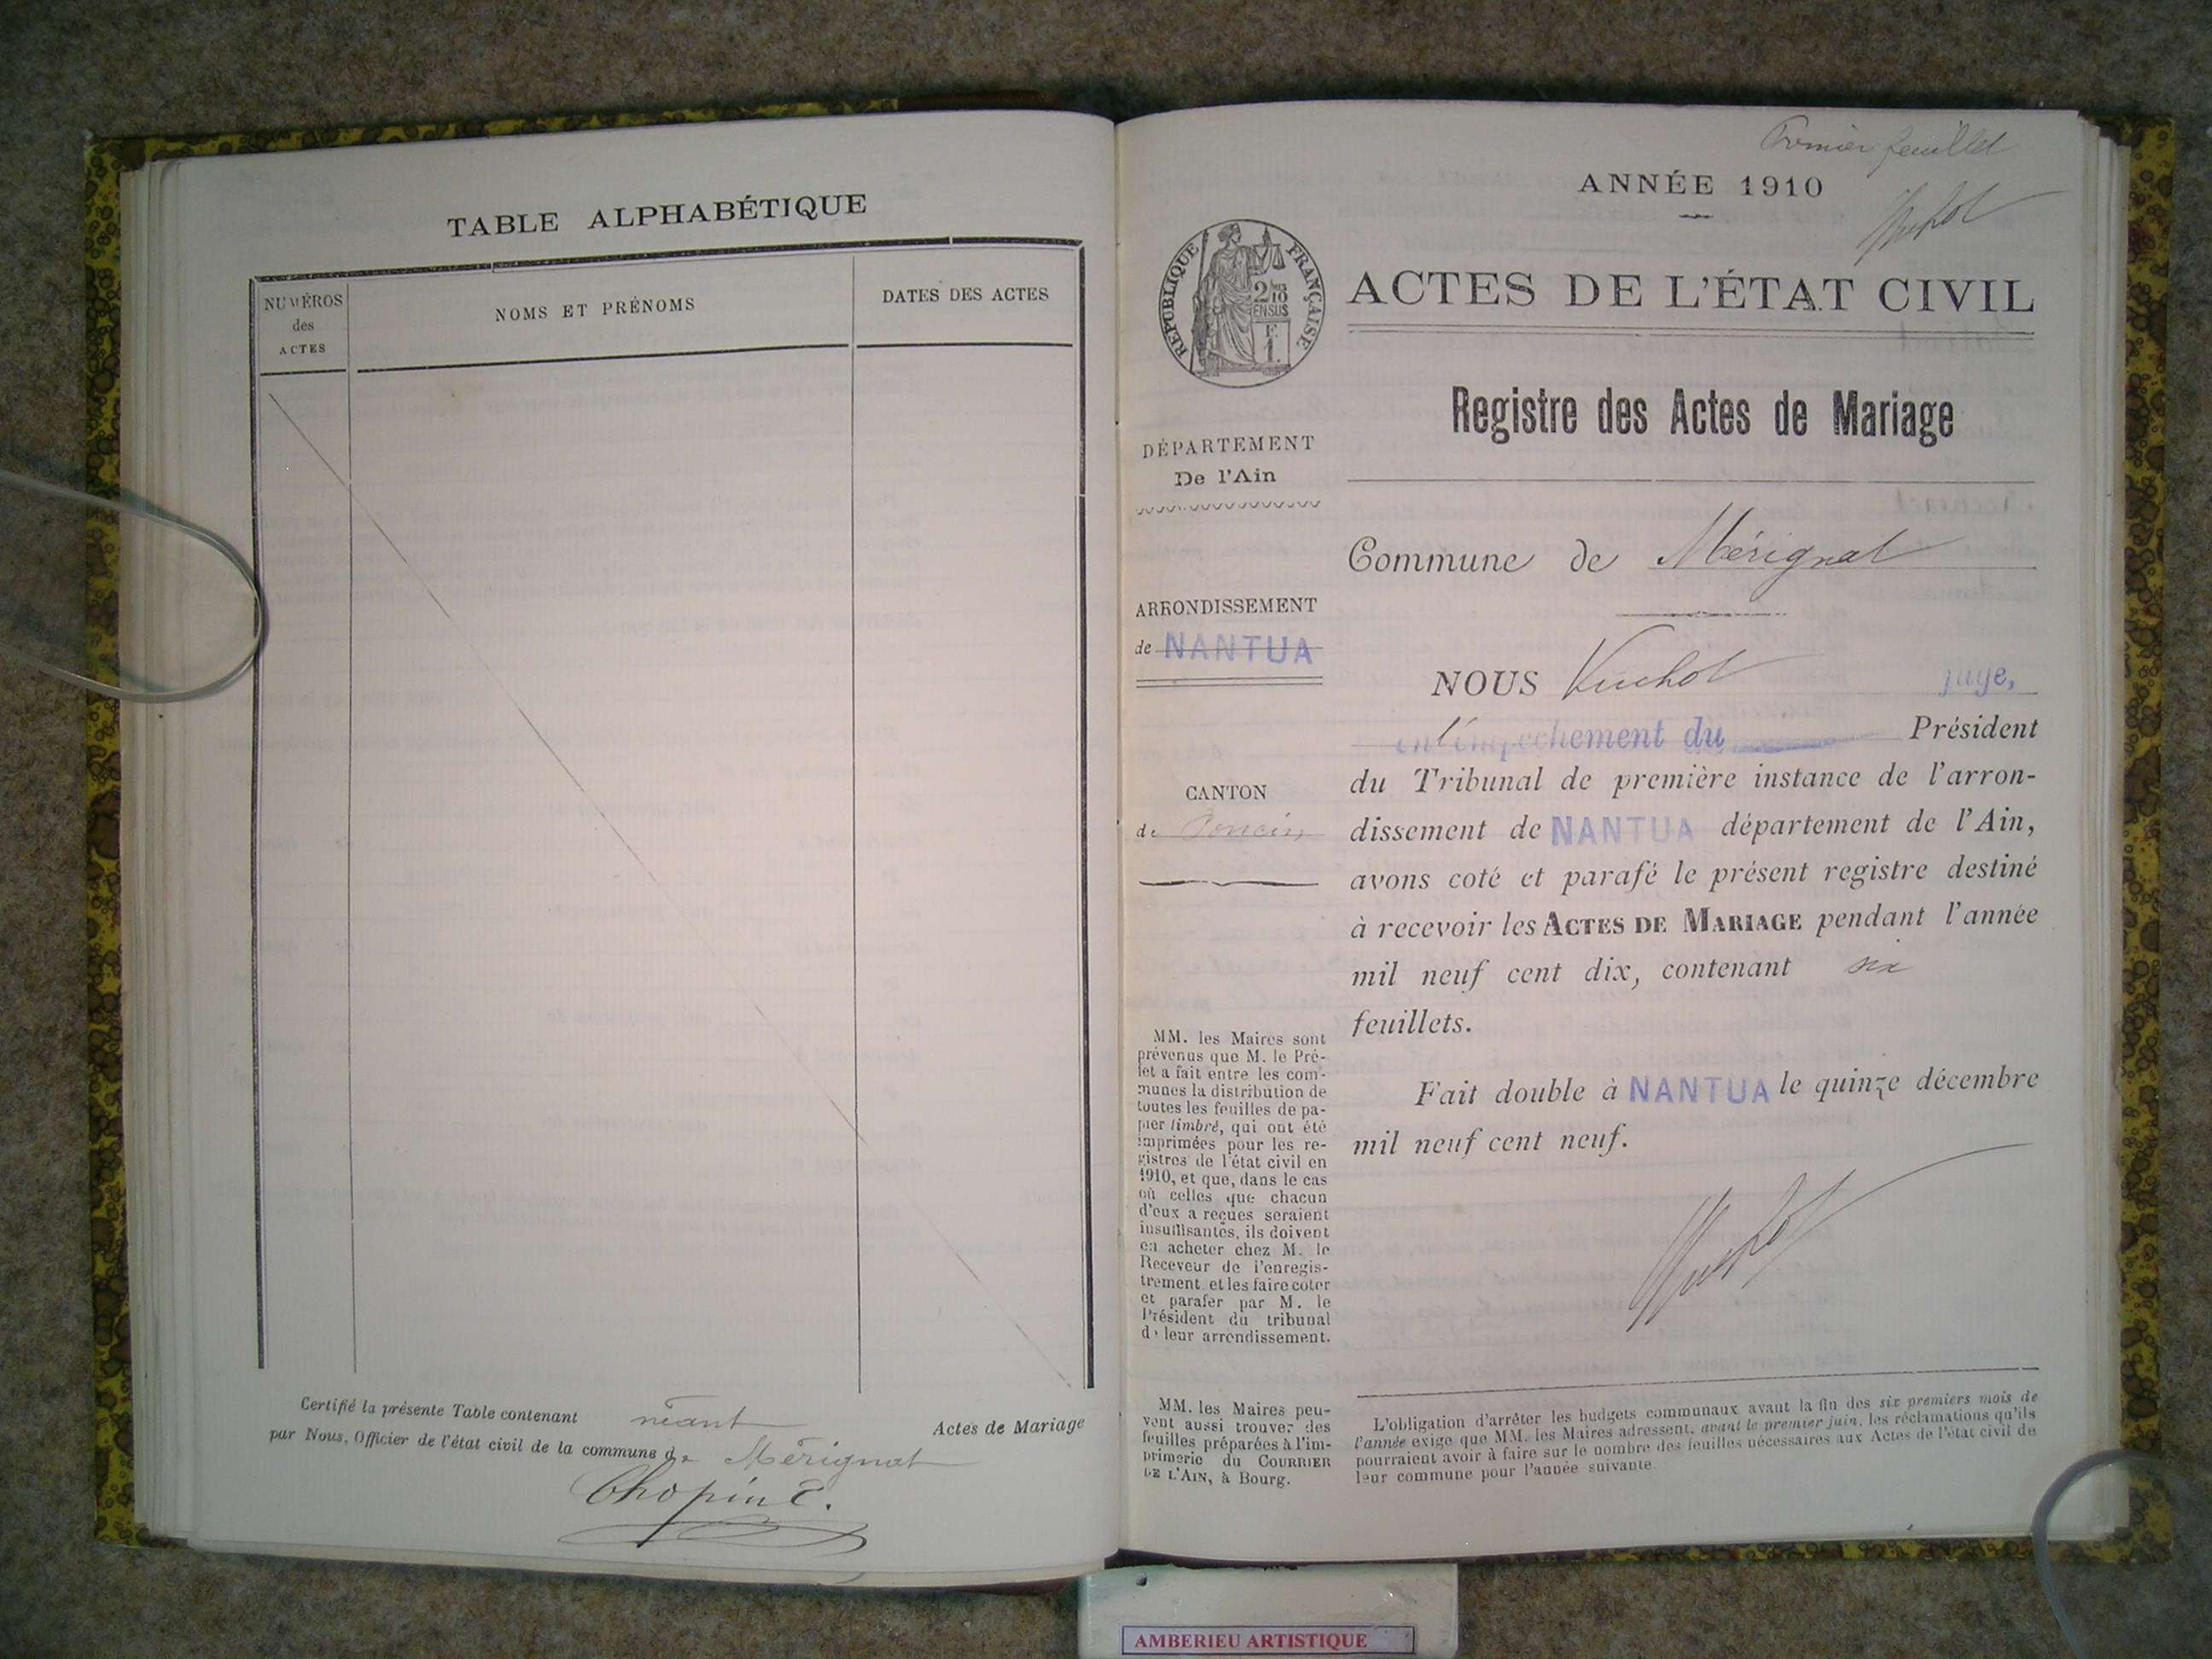 TABLE ALPHABÉTIQUE
NUMÉROS
des
ACTES
NOMS ET PRÉNOMS
DATES DES ACTES
Certifié la présente Table contenant néant Actes de Mariage
par Nous, Officier de l'état civil de la commune de Mérignat
Chopin C.
Premier feuillet
ANNÉE 1910
Vuchot
RÉPUBLIQUE FRANÇAISE
2/10
EN SUS
F.
1.
ACTES DE L'ÉTAT CIVIL
Registre des Actes de Mariage
DÉPARTEMENT
De l'Ain
ARRONDISSEMENT
de NANTUA
CANTON
de Poncin
MM. les Maires sont
prévenus que M. le Pré-
fet a fait entre les com-
munes la distribution de
toutes les feuilles de pa-
pier timbré, qui ont été
imprimées pour les re-
gistres de l'état civil en
1910, et que, dans le cas
où celles que chacun
d'eux a reçues seraient
insuffisantes, ils doivent
en acheter chez M. le
Receveur de l'enregis-
trement et les faire coter
et parafer par M. le
Président du tribunal
de leur arrondissement.
MM. les Maires peu-
vent aussi trouver des
feuilles préparées à l'im-
primerie du COURRIER
DE L'AIN, à Bourg.
Commune de Mérignat
NOUS Vuchot juge,
en l'empêchement du Président
du Tribunal de première instance de l'arron-
dissement de NANTUA département de l'Ain,
avons coté et parafé le présent registre destiné
à recevoir les ACTES DE MARIAGE pendant l'année
mil neuf cent dix, contenant six
feuillets.
Fait double à NANTUA le quinze décembre
mil neuf cent neuf.
Vuchot
L'obligation d'arrêter les budgets communaux avant la fin des six premiers mois de
l'année exige que MM. les Maires adressent, avant le premier juin, les réclamations qu'ils
pourraient avoir à faire sur le nombre des feuilles nécessaires aux Actes de l'état civil de
leur commune pour l'année suivante.
AMBERIEU ARTISTIQUE